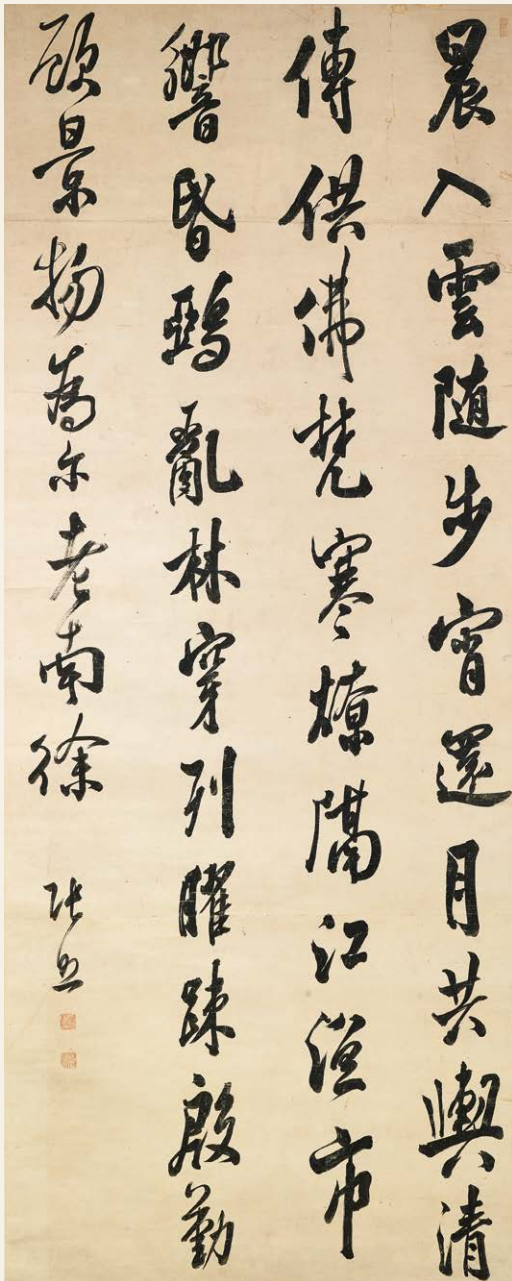 晨入雲随步宵還月共輿清
傳供佛梵寒燎隔江漁市
響昏鵶亂林穿列曜踈殷勤
顧景物為尔老南徐
張照